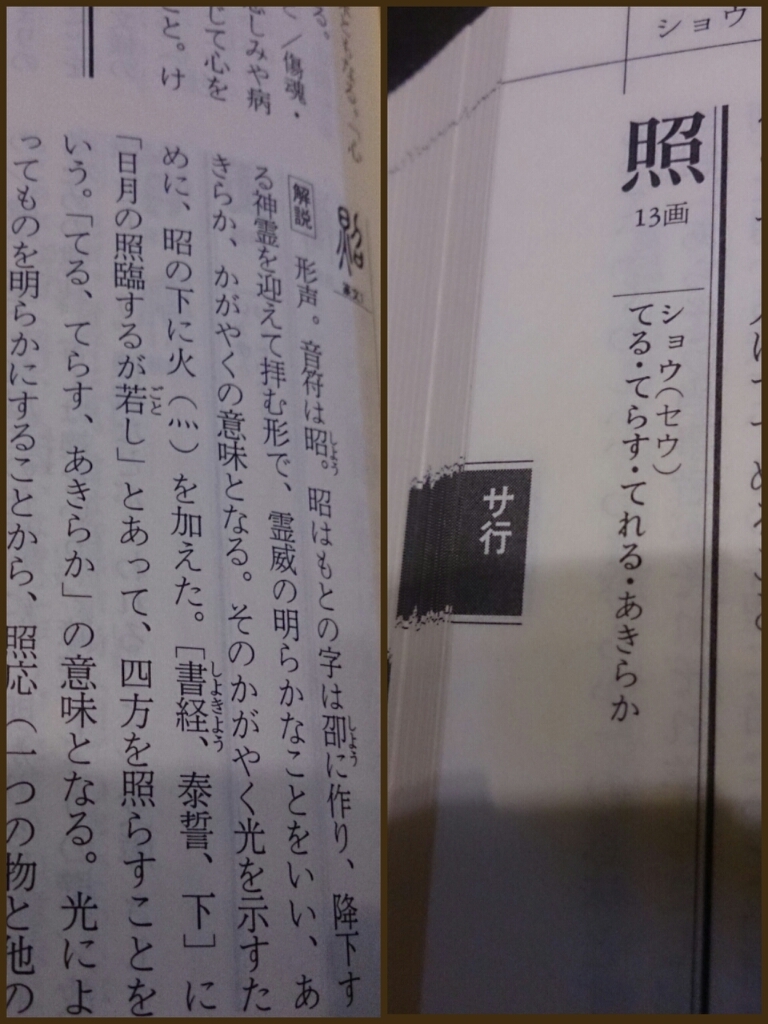 ショウ
照
13画
ショウ(セウ)
てる・てらす・てれる・あきらか
サ行
傷魂・
しみや病
じて心を
と。け
解説 形声。音符は昭。昭はもとの字は卲に作り、降下す
る神霊を迎えて拝む形で、霊威の明らかなことをいい、あ
きらか、かがやくの意味となる。そのかがやく光を示すた
めに、昭の下に火(灬)を加えた。[書経、泰誓、下]に
「日月の照臨するが若し」とあって、四方を照らすことを
いう。「てる、てらす、あきらか」の意味となる。光によ
ってものを明らかにすることから、照応(一つの物と他の